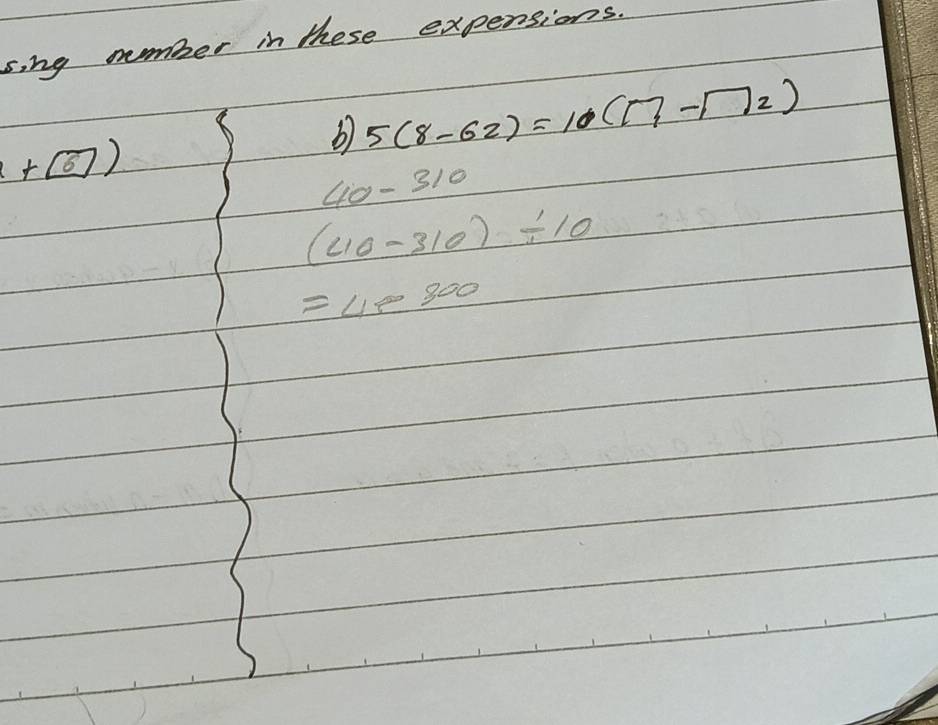 sing number in these expensions.
+ 6)
b) 5(8-62) = 10(□ - □2)
40 - 310
(40-310) ÷ 10
= 4 300